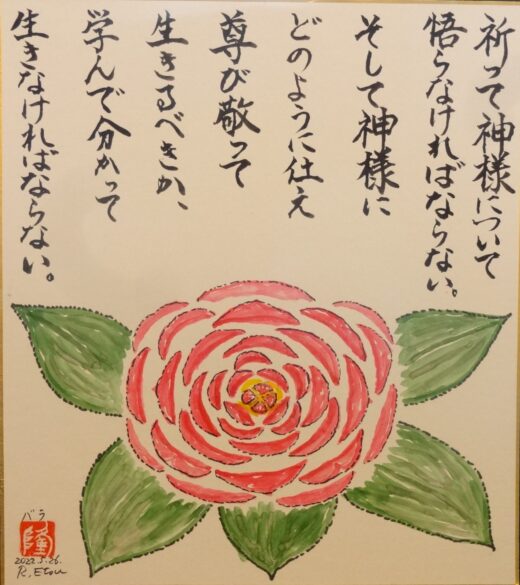 祈って神様について
悟らなければならない。
そして神様に
どのように仕え
尊び敬って
生きるべきか、
学んで分かって
生きなければならない。
バラ
隆
2022.5.26.
R. Etou